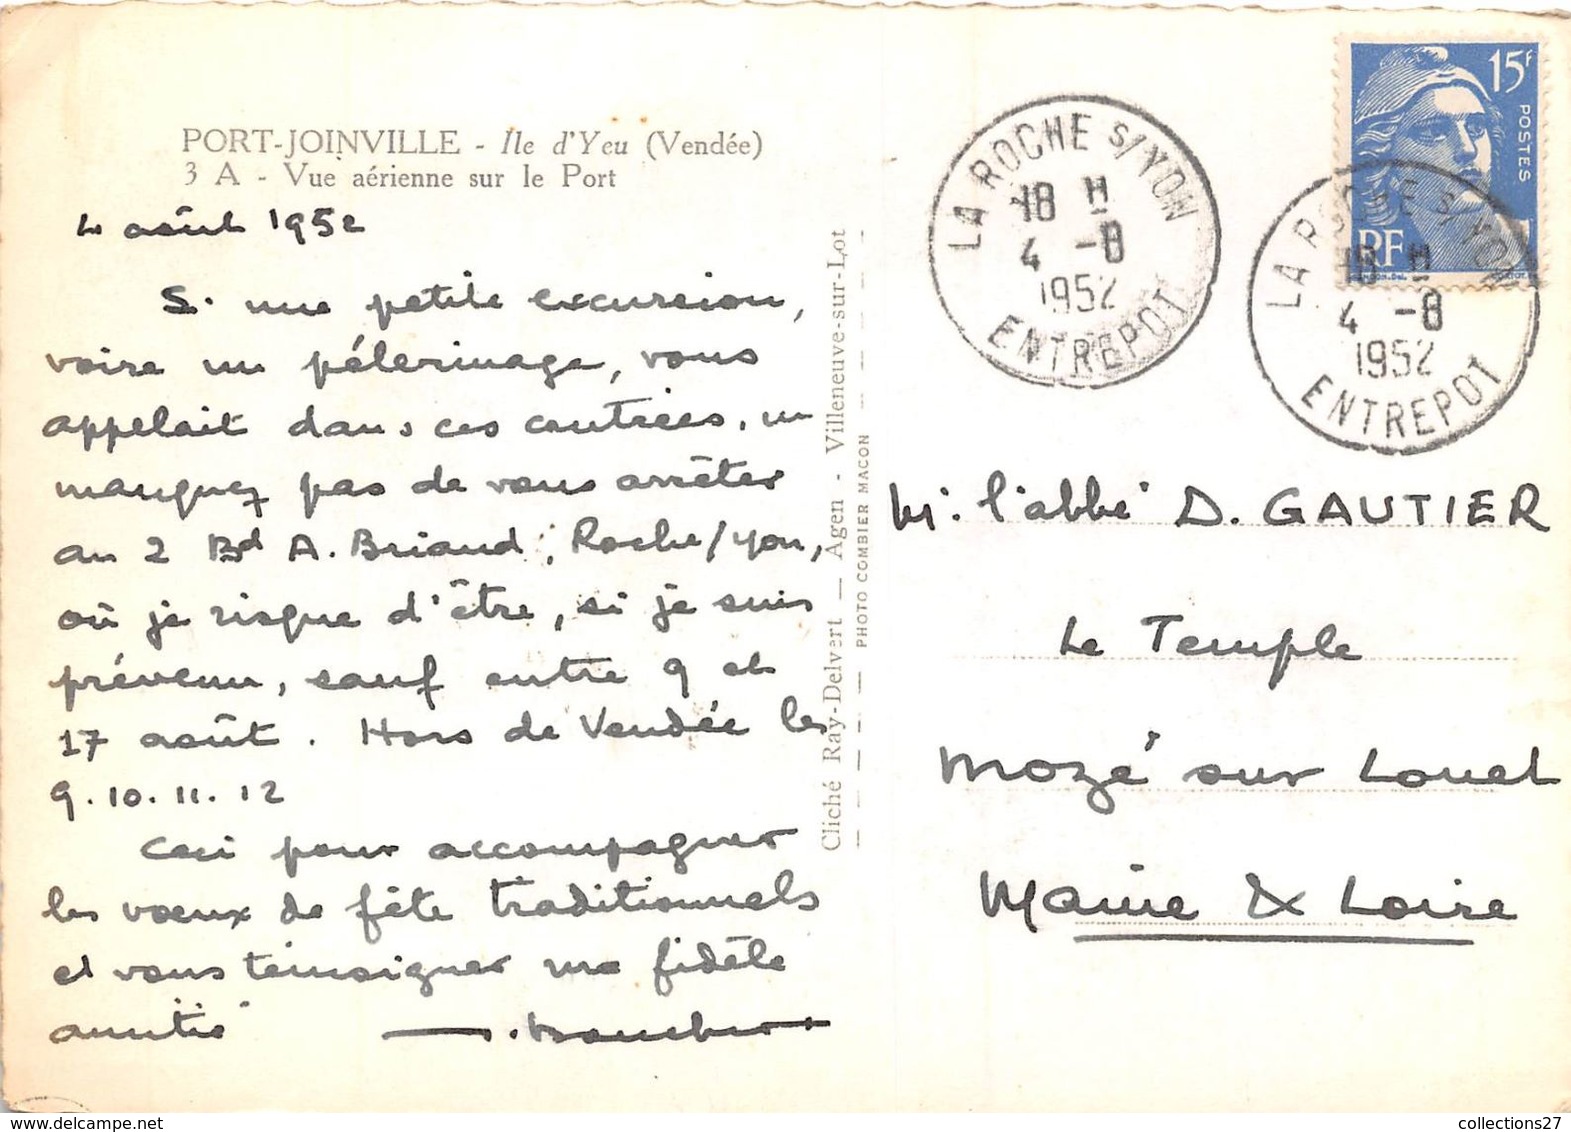 PORT-JOINVILLE - Ile d'Yeu (Vendée)
3 A - Vue aérienne sur le Port
4 août 1952
Si une petite excursion,
voire un pélerinage, vous
appelait dans ces contrées, ne
manquez pas de vous arrêter
au 2 Bd A. Briand, Roche/Yon,
où je risque d'être, si je suis
prévenu, sauf entre 9 et
17 août. Hors de Vendée les
9.10.11.12
Ceci pour accompagner
les voeux de fête traditionnels
et vous témoigner ma fidèle
amitié
Cliché Ray-Delvert — Agen - Villeneuve-sur-Lot
PHOTO COMBIER MACON
LA ROCHE S/YON
18 H
4 -8
1952
ENTREPOT
15F
POSTES
RF
LA ROCHE S/YON
18 H
4 -8
1952
ENTREPOT
Mr l'abbé D. GAUTIER
Le Temple
Mozé sur Louet
Maine & Loire
collections27